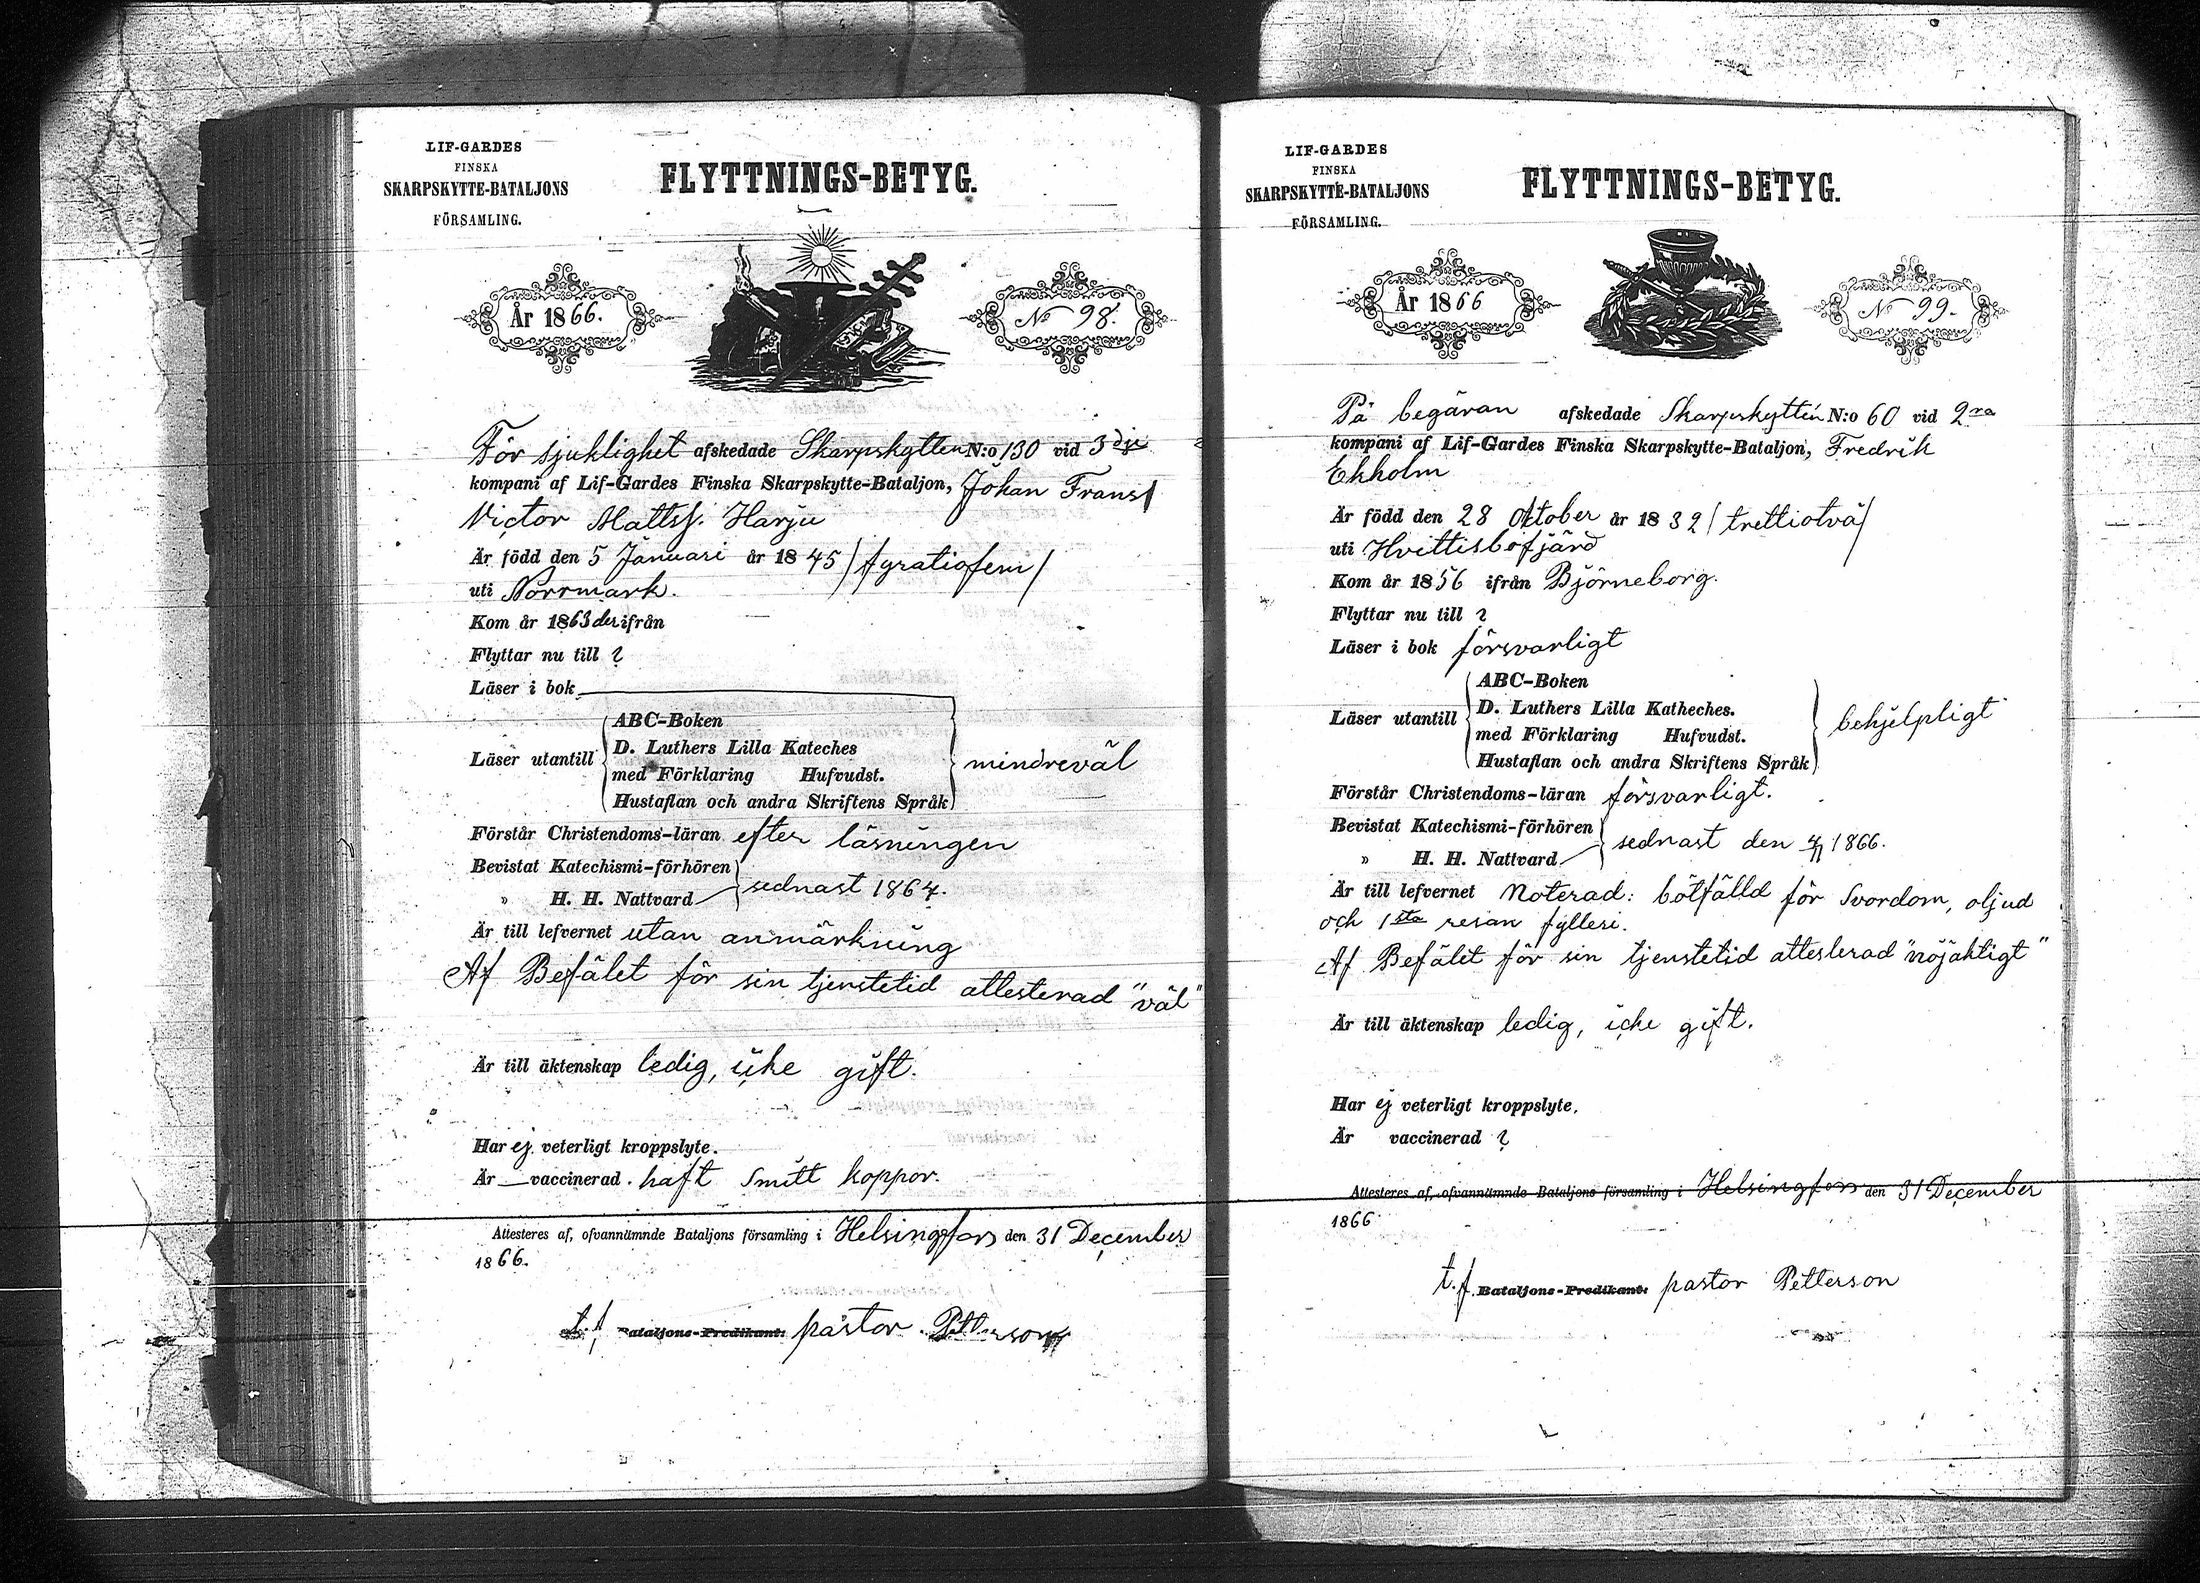 LIF-GARDES
FINSKA
SKARPSKYTTE-BATALJONS
FÖRSAMLING.
FLYTTNINGS-BETYG.
År 1866.
No 98.
För sjuklighet afskedade Skarpskytten N:o 130 vid 3dje
kompani af Lif-Gardes Finska Skarpskytte-Bataljon, Johan Frans
Victor Mattss. Harju
Är född den 5 Januari år 1845 / fyratiofem /
uti Norrmark.
Kom år 1863 der ifrån
Flyttar nu till ?
Läser i bok
Läser utantill
ABC-Boken
D. Luthers Lilla Kateches
med Förklaring Hufvudst.
Hustaflan och andra Skriftens Språk
mindreväl
Förstår Christendoms-läran efter läsningen
Bevistat Katechismi-förhören
" H. H. Nattvard
sednast 1864.
Är till lefvernet utan anmärkning
Af Befälet för sin tjenstetid attesterad "väl"
Är till äktenskap ledig, icke gift.
Har ej veterligt kroppslyte.
Är vaccinerad. haft Smitt koppor.
Attesteres af, ofvannämnde Bataljons församling i Helsingfors den 31 December
1866.
t.f. Bataljons-Predikant: pastor Petterson
LIF-GARDES
FINSKA
SKARPSKYTTE-BATALJONS
FÖRSAMLING.
FLYTTNINGS-BETYG.
År 1866
No 99.
På begäran afskedade Skarpskytten N:o 60 vid 2ra
kompani af Lif-Gardes Finska Skarpskytte-Bataljon, Fredrik
Ekholm
Är född den 28 Oktober år 1832 / trettiotvå /
uti Hvittisbofjärd
Kom år 1856 ifrån Björneborg.
Flyttar nu till ?
Läser i bok försvarligt
Läser utantill
ABC-Boken
D. Luthers Lilla Katheches.
med Förklaring Hufvudst.
Hustaflan och andra Skriftens Språk
behjelpligt
Förstår Christendoms-läran försvarligt.
Bevistat Katechismi-förhören
" H. H. Nattvard
sednast den 1866.
Är till lefvernet Noterad: bötfälld för Svordom, oljud
och 1sta resan fylleri.
Af Befälet för sin tjenstetid attesterad "nöjaktigt"
Är till äktenskap ledig, icke gift.
Har ej veterligt kroppslyte.
Är vaccinerad ?
Attesteres af, ofvannämnde Bataljons församling i Helsingfors den 31 December
1866
t.f. Bataljons-Predikant: pastor Petterson